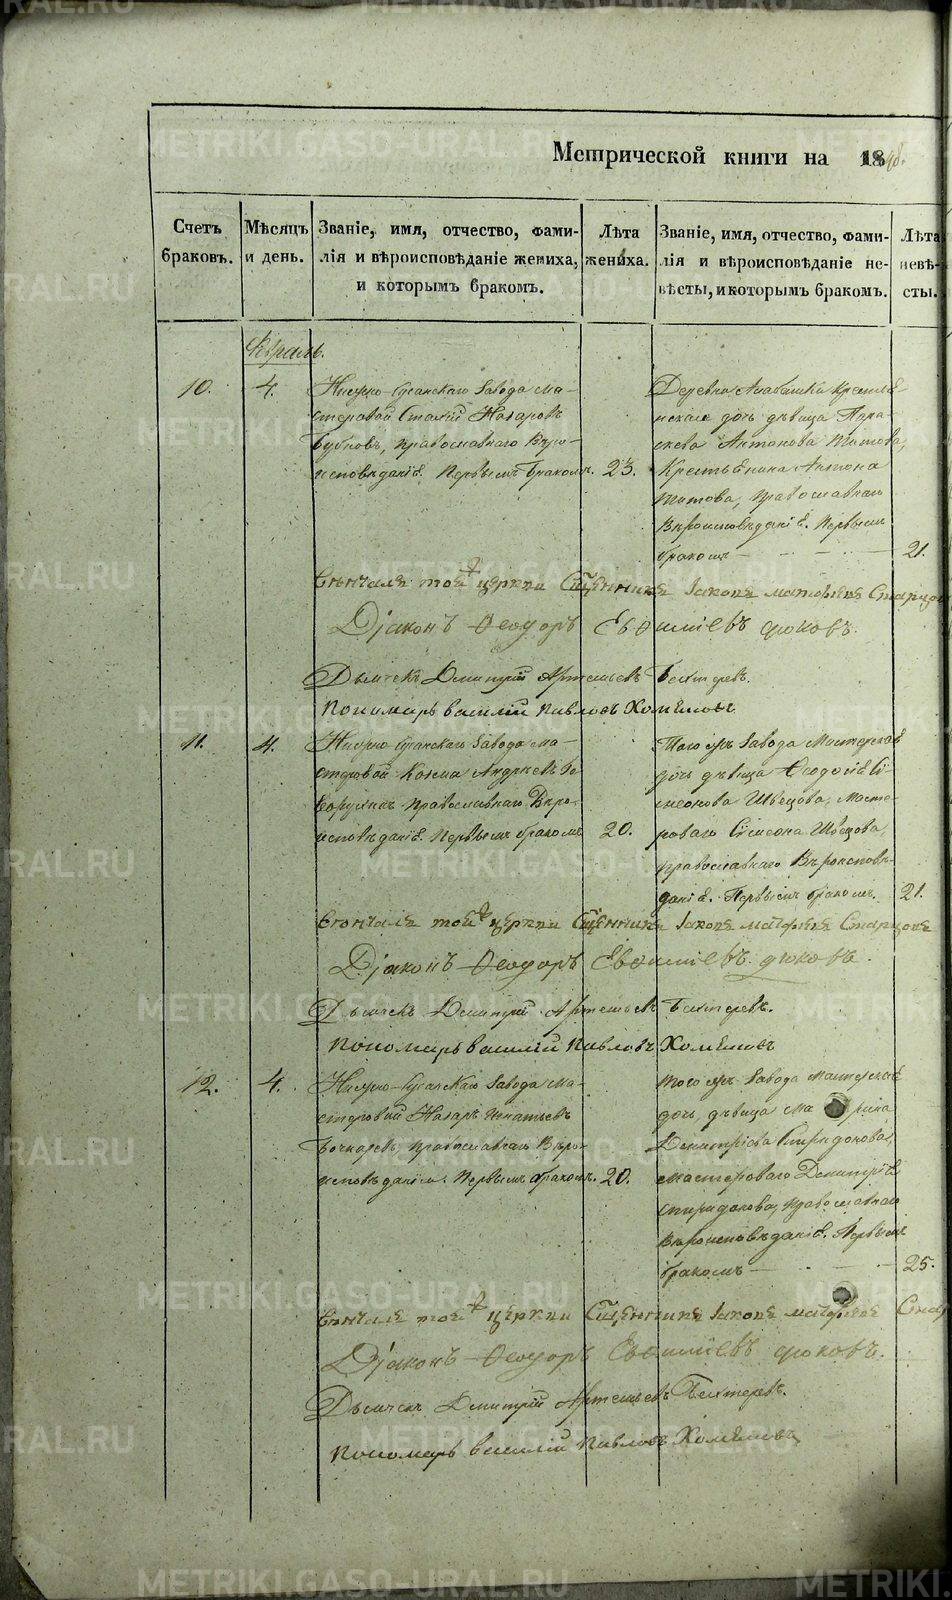 METRIKI.GASO-URAL.RU
Метрической книги на 1848.
Счетъ браковъ.
Мѣсяцъ и день.
Званіе, имя, отчество, фами-
лія и вѣроисповѣданіе жениха,
и которымъ бракомъ.
Лѣта
жениха.
Званіе, имя, отчество, фами-
лія и вѣроисповѣданіе не-
вѣсты, и которымъ бракомъ.
Лѣта
невѣ-
сты.
10. 4.
завода ма-
стеровой Назаровъ
православнаго Вѣро-
исповѣданіе. Первымъ бракомъ. 23.
Деревни
дочь дѣвица Пара-
скева Антонова Титова,
Крестьянина Антона
Титова, православнаго
Вѣроисповѣданіе. Первымъ
бракомъ 21.
Вѣнчалъ той церкви Сщенникъ Іаковъ
Діаконъ Ѳеодоръ Евѳиміевъ
Дьячекъ Димитрій Артемьевъ Бехтеревъ.
Пономарь василій Павловъ Хомяковъ
11. 4.
завода ма-
стеровой Козма Андреевъ
православнаго Вѣро-
исповѣданіе. Первымъ бракомъ 20.
Того жъ завода Мастерская
дочь дѣвица Ѳеодосія Си-
меонова Швецова, Масте-
роваго Симеона Швецова,
православнаго Вѣроисповѣ-
даніе. Первымъ бракомъ. 21.
Вѣнчалъ той церкви Сщенникъ Іаковъ
Діаконъ Ѳеодоръ Евѳиміевъ
Дьячекъ Димитрій Артемьевъ Бехтеревъ.
Пономарь василій Павловъ Хомяковъ
12. 4.
завода ма-
стеровой Назаръ Игнатьевъ
Бочкаревъ, православнаго Вѣро-
исповѣданія. Первымъ бракомъ. 20.
Того жъ завода мастерская
дочь, дѣвица
Димитріева Спиридонова,
мастероваго Димитрія
Спиридонова, православнаго
Вѣроисповѣданіе. Первымъ
бракомъ 25.
Вѣнчалъ той церкви Сщенникъ Іаковъ
Діаконъ Ѳеодоръ Евѳиміевъ
Дьячекъ Димитрій Артемьевъ Бехтеревъ.
Пономарь василій Павловъ Хомяковъ